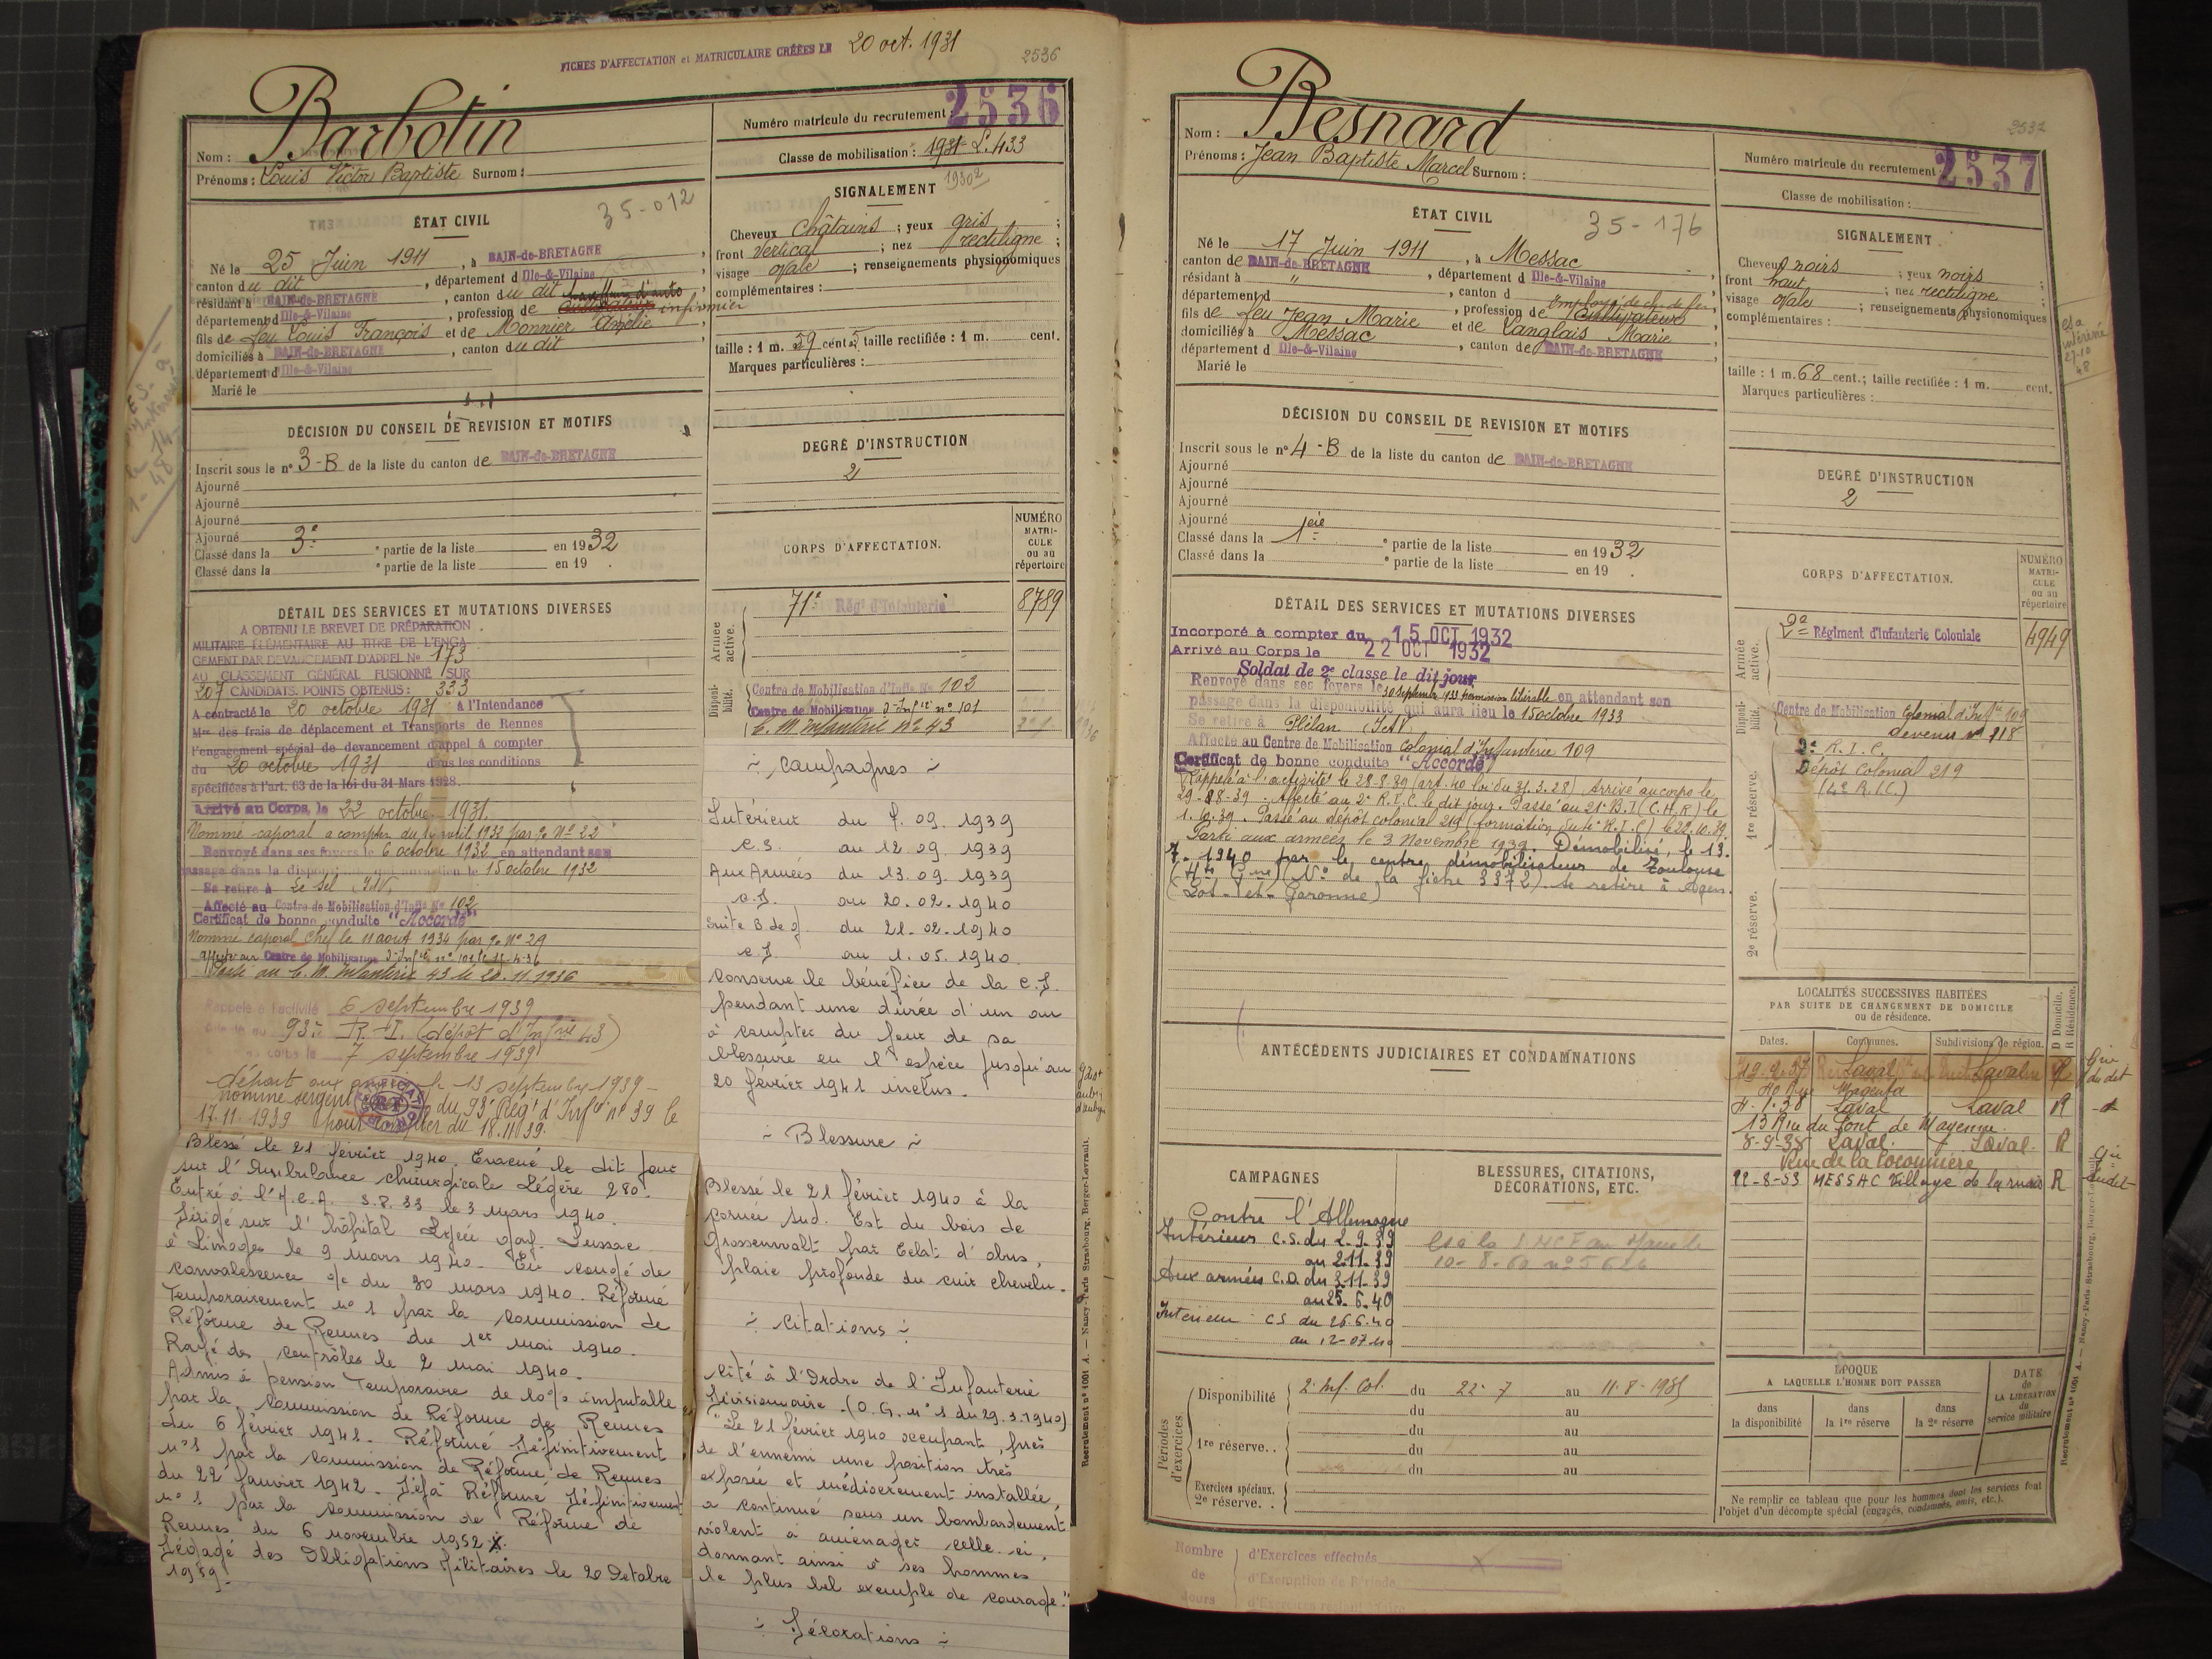 FICHES D'AFFECTATION et MATRICULAIRE CRÉÉES LE 20 oct. 1931
2536
Nom : Barbotin
Prénoms : Louis Victor Baptiste Surnom :
Numéro matricule du recrutement : 2536
Classe de mobilisation : 1931 L. 433
1930
ÉTAT CIVIL
35-012
Né le 25 Juin 1911, à BAIN-de-BRETAGNE,
canton du dit, département d Ille-&-Vilaine,
résidant à BAIN-de-BRETAGNE, canton du dit
département d Ille-&-Vilaine, profession de infirmier
fils de feu Louis François et de Monnier Amélie,
domiciliés à BAIN-de-BRETAGNE, canton du dit
département d Ille-&-Vilaine
Marié le
SIGNALEMENT
Cheveux châtains ; yeux gris ;
front vertical ; nez rectiligne ;
visage ovale ; renseignements physionomiques
complémentaires :
taille : 1 m. 59 cent. 5 taille rectifiée : 1 m. cent.
Marques particulières :
DÉCISION DU CONSEIL DE REVISION ET MOTIFS
Inscrit sous le n° 3-B de la liste du canton de BAIN-de-BRETAGNE
Ajourné
Ajourné
Ajourné
Ajourné
Classé dans la 3e e partie de la liste en 1932
Classé dans la e partie de la liste en 19 .
DEGRÉ D'INSTRUCTION
2
CORPS D'AFFECTATION.
NUMÉRO MATRI-CULE ou au répertoire
Armée active.
71e Régt d'Infanterie 8789
Disponibilité.
Centre de Mobilisation d'Inftie No 102
Centre de Mobilisation d'Inftie n° 101
C. M. infanterie n° 43
DÉTAIL DES SERVICES ET MUTATIONS DIVERSES
A OBTENU LE BREVET DE PRÉPARATION
MILITAIRE ÉLÉMENTAIRE AU TITRE DE L'ENGA-
GEMENT PAR DEVANCEMENT D'APPEL No 173
AU CLASSEMENT GÉNÉRAL FUSIONNÉ SUR
207 CANDIDATS. POINTS OBTENUS : 333
A contracté le 20 octobre 1931 à l'Intendance
Mre des frais de déplacement et Transports de Rennes
l'engagement spécial de devancement d'appel à compter
du 20 octobre 1931 dans les conditions
spécifiées à l'art. 63 de la loi du 31 Mars 1928.
Arrivé au Corps, le 22 octobre 1931.
Nommé caporal a compter du avril 1932 par No 22
Renvoyé dans ses foyers le 6 octobre 1932 en attendant son
passage dans la disponibilité qui aura lieu le 15 octobre 1932
Se retire à Le Sel I&V
Affecté au Centre de Mobilisation d'Inftie No 102
Certificat de bonne conduite "Accordé"
Nommé caporal chef le 11 août 1934 par No 29
Affecté au Centre de Mobilisation d'Inftie n° 101
Passé au C. M. Infanterie 43 le 20.11.1936
Rappelé à l'activité 6 septembre 1939
93e R.I. (dépôt d'Infrie 43)
7 septembre 1939
départ aux armées le 13 septembre 1939 -
nommé sergent du 93e Régt d'Infie n° 39 le
17.11.1939 pour compter du 18.11.39.
Blessé le 21 février 1940. Evacué le dit jour
sur l'Ambulance chirurgicale Légère 280.
Entré à l'H.C.A. S.P. 33 le 3 mars 1940.
Dirigé sur l'hôpital Lycée Gay-Lussac
à Limoges le 9 mars 1940. En congé de
convalescence du 30 mars 1940. Réformé
Temporairement n° 1 par la Commission de
Réforme de Rennes du 1er mai 1940.
Rayé des contrôles le 2 mai 1940.
Admis à pension Temporaire de 10% imputable
par la Commission de Réforme de Rennes
du 6 février 1941. Réformé Définitivement
n° 1 par la Commission de Réforme de Rennes
du 22 janvier 1942. Déjà Réformé Définitivement
n° 1 par la Commission de Réforme de
Rennes du 6 novembre 1952.
Dégagé des Obligations Militaires le 20 Octobre
1959.
~ Campagnes ~
Intérieur du 7.09.1939
C.S. au 12.09.1939
Aux Armées du 13.09.1939
au 20.02.1940
Suite B de g. du 21.02.1940
au 1.05.1940.
Conserve le bénéfice de la
pendant une durée d'un an
à compter du jour de sa
blessure en l'espèce jusqu'au
20 février 1941 inclus.
~ Blessure ~
Blessé le 21 février 1940 à la
corner Sud. Est du bois de
Grossenwalt par Eclat d'obus,
plaie profonde du cuir chevelu.
~ Citations ~
Cité à l'Ordre de l'Infanterie
Divisionnaire. (O.G. n° 1 du 29.3.1940)
"Le 21 février 1940 occupant, près
de l'ennemi une position très
exposée et médiocrement installée,
a continué sous un bombardement
violent a aménager celle-ci,
donnant ainsi à ses hommes
le plus bel exemple de courage."
~ Décorations ~
Recrutement n° 1001 A. — Nancy-Paris-Strasbourg, Berger-Levrault.
2537
Nom : Besnard
Prénoms : Jean Baptiste Marcel Surnom :
Numéro matricule du recrutement 2537
Classe de mobilisation :
ÉTAT CIVIL
35-176
Né le 17 Juin 1911, à Messac,
canton de BAIN-de-BRETAGNE, département d Ille-&-Vilaine,
résidant à ", canton d
département d, profession de Employé de ch. de fer Cultivateur
fils de feu Jean Marie et de Langlais Marie
domiciliés à Messac, canton de BAIN-de-BRETAGNE,
département d Ille-&-Vilaine
Marié le
SIGNALEMENT
Cheveux noirs ; yeux noirs ;
front haut ; nez rectiligne ;
visage ovale ; renseignements physionomiques
complémentaires :
taille : 1 m. 68 cent. ; taille rectifiée : 1 m. cent.
Marques particulières :
DÉCISION DU CONSEIL DE REVISION ET MOTIFS
Inscrit sous le n° 4-B de la liste du canton de BAIN-de-BRETAGNE
Ajourné
Ajourné
Ajourné
Ajourné
Classé dans la 1ere e partie de la liste en 1932
Classé dans la e partie de la liste en 19 .
DEGRÉ D'INSTRUCTION
2
CORPS D'AFFECTATION.
NUMÉRO MATRI-CULE ou au répertoire
Armée active.
2e Régiment d'Infanterie Coloniale 4949
Disponibilité.
Centre de Mobilisation Colonial d'Inftie 109
devenu n° 218
2e R.I.C.
Dépôt Colonial 219
(4e R.I.C.)
1re réserve.
2e réserve.
DÉTAIL DES SERVICES ET MUTATIONS DIVERSES
Incorporé à compter du 15 OCT 1932
Arrivé au Corps le 22 OCT 1932
Soldat de 2e classe le dit jour
Renvoyé dans ses foyers le 30 Septembre 1933 permission libérable en attendant son
passage dans la disponibilité qui aura lieu le 15 octobre 1933
Se retire à Plélan I&V
Affecté au Centre de Mobilisation Colonial d'Infanterie 109
Certificat de bonne conduite "Accordé"
Rappelé à l'activité le 28-8-39 (art. 40 loi du 31.3.28) Arrivé au corps le
29-88-39. Affecté au 2e R.I.C. le dit jour. Passé au 21e B.I. (C.H.R) le
1.10.39. Passé au dépôt colonial 219 (formation du 4e R.I.C) le 22.10.39.
Parti aux armées le 3 Novembre 1939. Démobilisé, le 13.
7.1940 par le centre démobilisateur de Toulouse
(Hte Gne) (N° de la fiche 3372) Se retire à Agen.
(Lot-et-Garonne)
ANTÉCÉDENTS JUDICIAIRES ET CONDAMNATIONS
LOCALITÉS SUCCESSIVES HABITÉES
PAR SUITE DE CHANGEMENT DE DOMICILE
ou de résidence.
Dates. Communes. Subdivisions de région. D Domicile. R Résidence.
Laval Laval R
Rue Magenta
4.1.38 Laval Laval R
13 Rue du Pont de Mayenne.
8-9-38 Laval. Laval. R
Rue de la Coconnière
22-8-53 MESSAC Village de la R
CAMPAGNES
Contre l'Allemagne
Intérieur C.S. du 2.9.39
au 2.11.39
Aux armées C.D. du 3.11.39
au 25.6.40
Intérieur C.S. du 26.6.40
au 12-07-40
BLESSURES, CITATIONS,
DÉCORATIONS, ETC.
Périodes d'exercices.
Disponibilité 2e Inf. Col. du 22.7 au 11.8-1935
du au
1re réserve. . du au
du au
du au
Exercices spéciaux.
2e réserve. .
ÉPOQUE
A LAQUELLE L'HOMME DOIT PASSER
dans la disponibilité
dans la 1re réserve
dans la 2e réserve
DATE de LA LIBÉRATION du service militaire
Ne remplir ce tableau que pour les hommes dont les services font
l'objet d'un décompte spécial (engagés, condamnés, omis, etc.).
Recrutement n° 1001 A. — Nancy-Paris-Strasbourg, Berger-Levrault.
Nombre de Jours
d'Exercices effectués
d'Exemption de Période
d'Exercices restant à faire